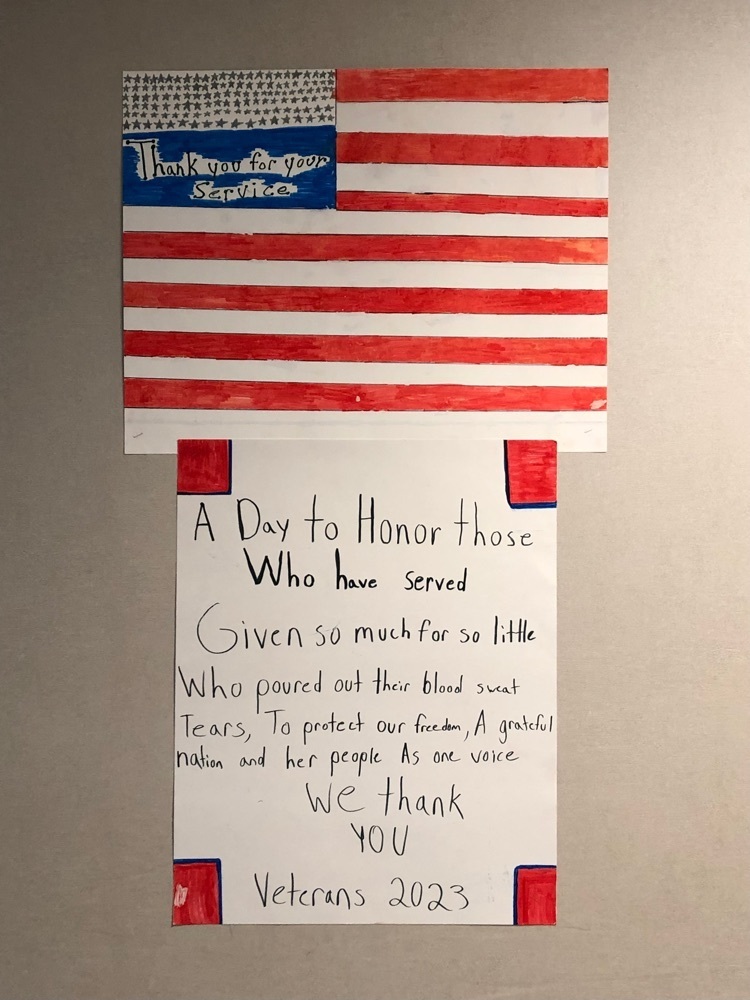 Thank you for your
Service
A Day to Honor those
Who have served
Given so much for so little
Who poured out their blood sweat
Tears, To protect our freedom, A grateful
nation and her people As one voice
We thank
YOU
Veterans 2023